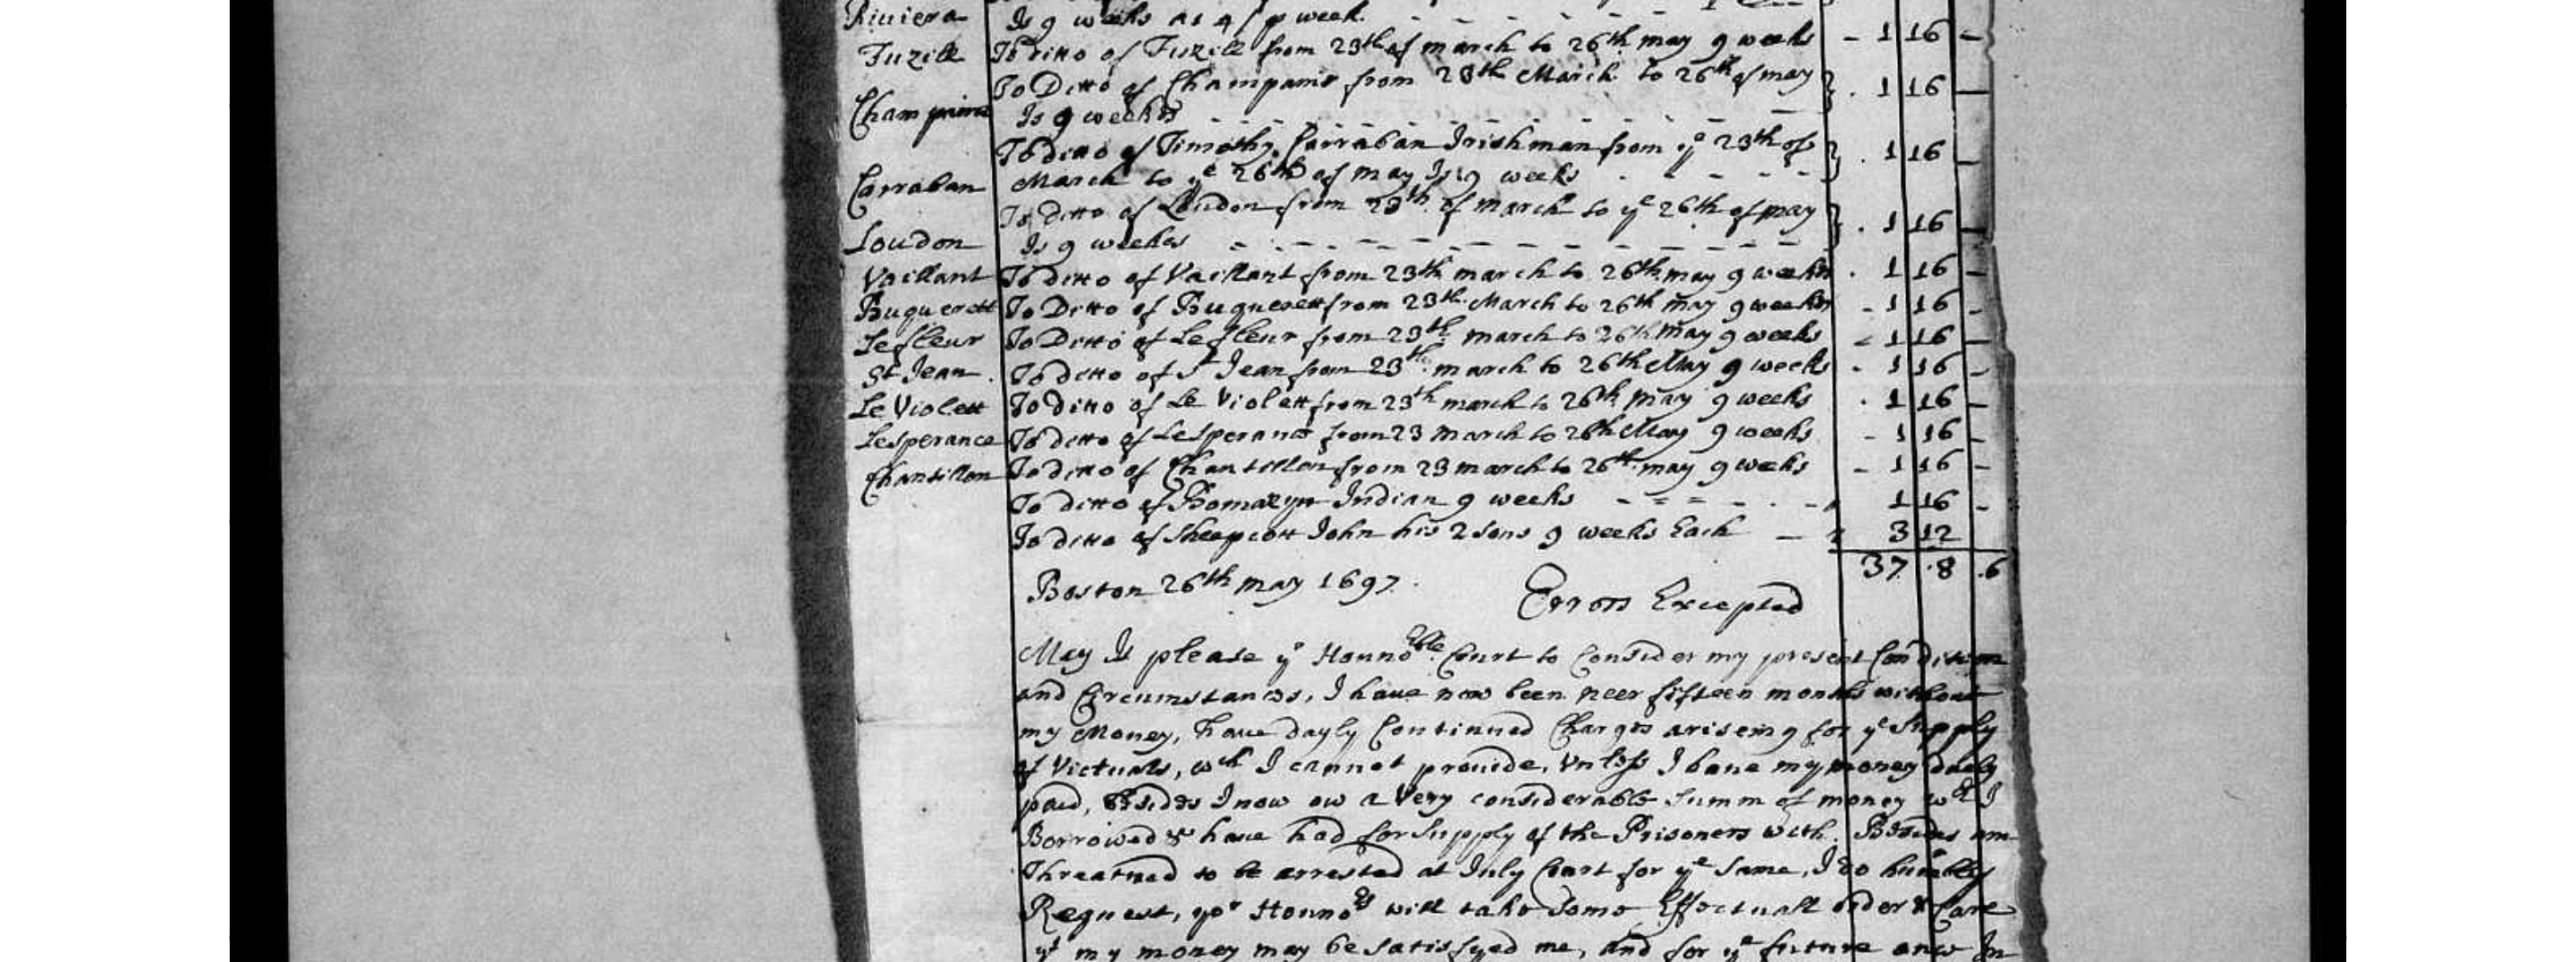 Riviera Is 9 weeks at 4/ p week
Fuzill To ditto of Fuzill from 23th of march to 26th may 9 weeks - 1 16 -
To Ditto of Champanis from 23th March to 26th of may } . 1 16 -
Is 9 weeks
Carraban To ditto of Timothy Carraban Irishman from ye 23th of } . 1 16 -
March to ye 26th of may Is 9 weeks
Loudon To ditto of Loudon from 23th of march to ye 26th of may } . 1 16 -
Is 9 weekes
Vaillant To ditto of Vaillant from 23th march to 26th may 9 weeks . 1 16 -
Buquerett To Ditto of Buquerett from 23th March to 26th may 9 weeks - 1 16 -
Lefleur To Ditto of Lefleur from 23th march to 26th May 9 weeks - 1 16 -
St Jean To ditto of St Jean from 23th march to 26th May 9 weeks - 1 16 -
Le Violett To ditto of Le Violett from 23th march to 26th may 9 weeks . 1 16 -
Lesperance To ditto of Lesperance from 23 march to 26th May 9 weeks - 1 16 -
Chantillon To ditto of Chantillon from 23 march to 26th may 9 weeks - 1 16 -
To ditto of Indian 9 weeks 1 16 -
To ditto of Sheepcott John his 2 sons 9 weeks Each - 3 12
37 8 6
Boston 26th may 1697. Errors Excepted
May It please ye Honnoble Court to Consider my present Condition
and Circumstances, I have now been neer fifteen months without
my Money, have dayly Continued Charges arising for ye Supply
of Victuals, wch I cannot provide, Unless I have my money duely
paid, Besides I now ow a Very considerable Summ of money wch I
Borrowed & have had for Supply of the Prisoners with. Besides am
Threatned to be arrested at July Court for ye same, I do humbly
Request, yor Honnors will take some Effectuall order & Care
yt my money may be satisfyed me, and for ye future